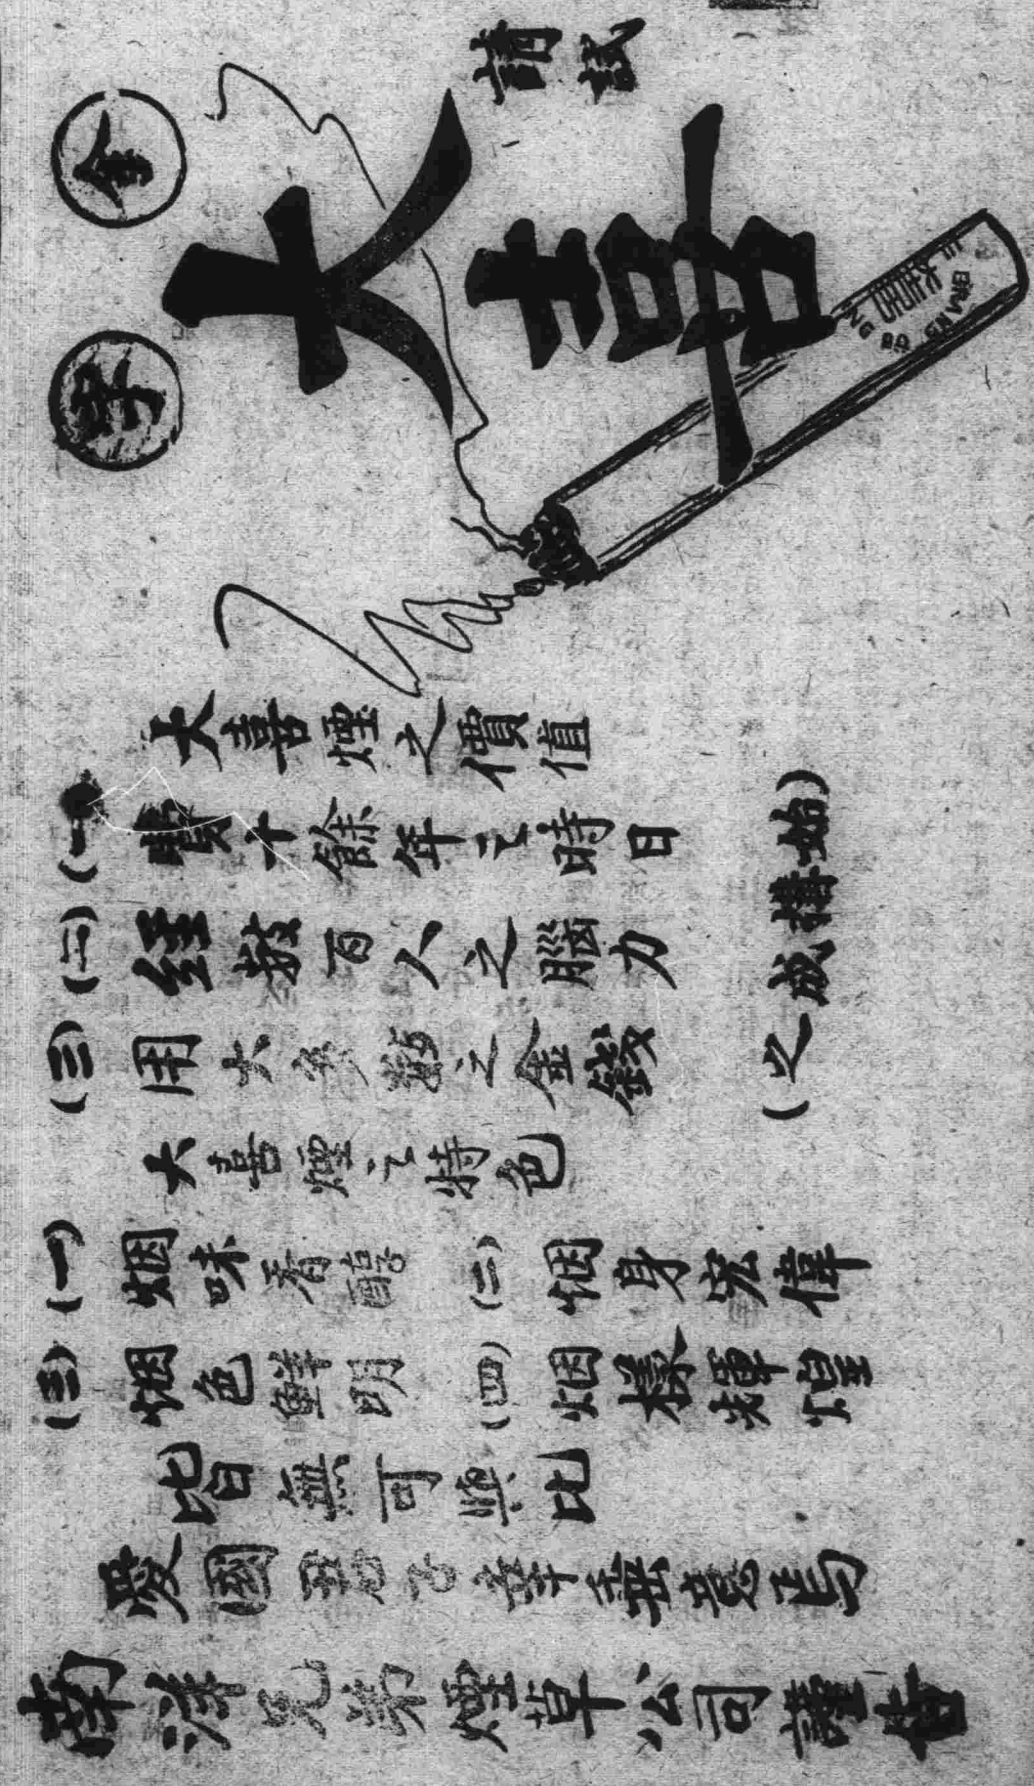 請試
金字
大喜
大喜煙之價值
(一)費十餘年之時日
(二)経數百人之腦力
(三)用大多數之金錢
(始搆成之)
大喜煙之特色
(一)烟味香醇 (二)烟身宏偉
(三)烟色鮮明 (四)烟樣輝煌
皆無可與比
愛國君子幸垂意焉
南洋兄弟煙草公司謹告